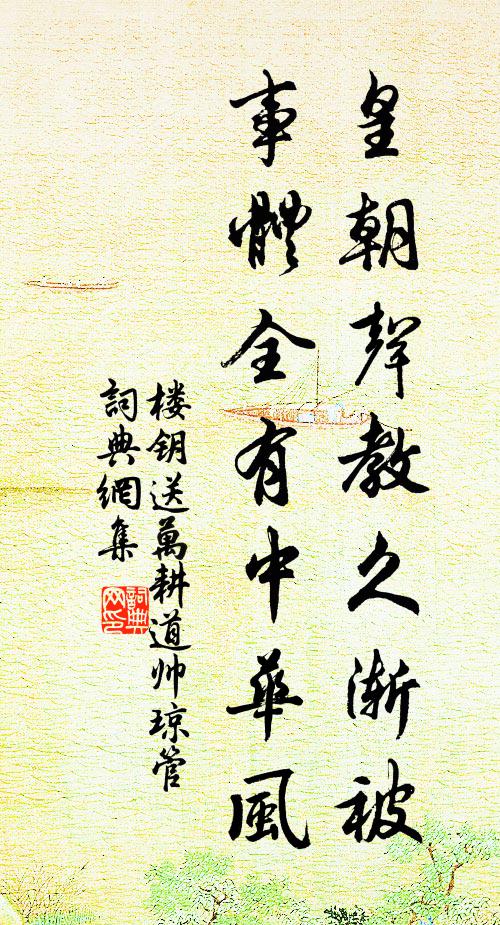 皇朝聲教久漸被
事體全有中華風
楼钥送萬耕道帅琼管
詞典網集
詞典网印